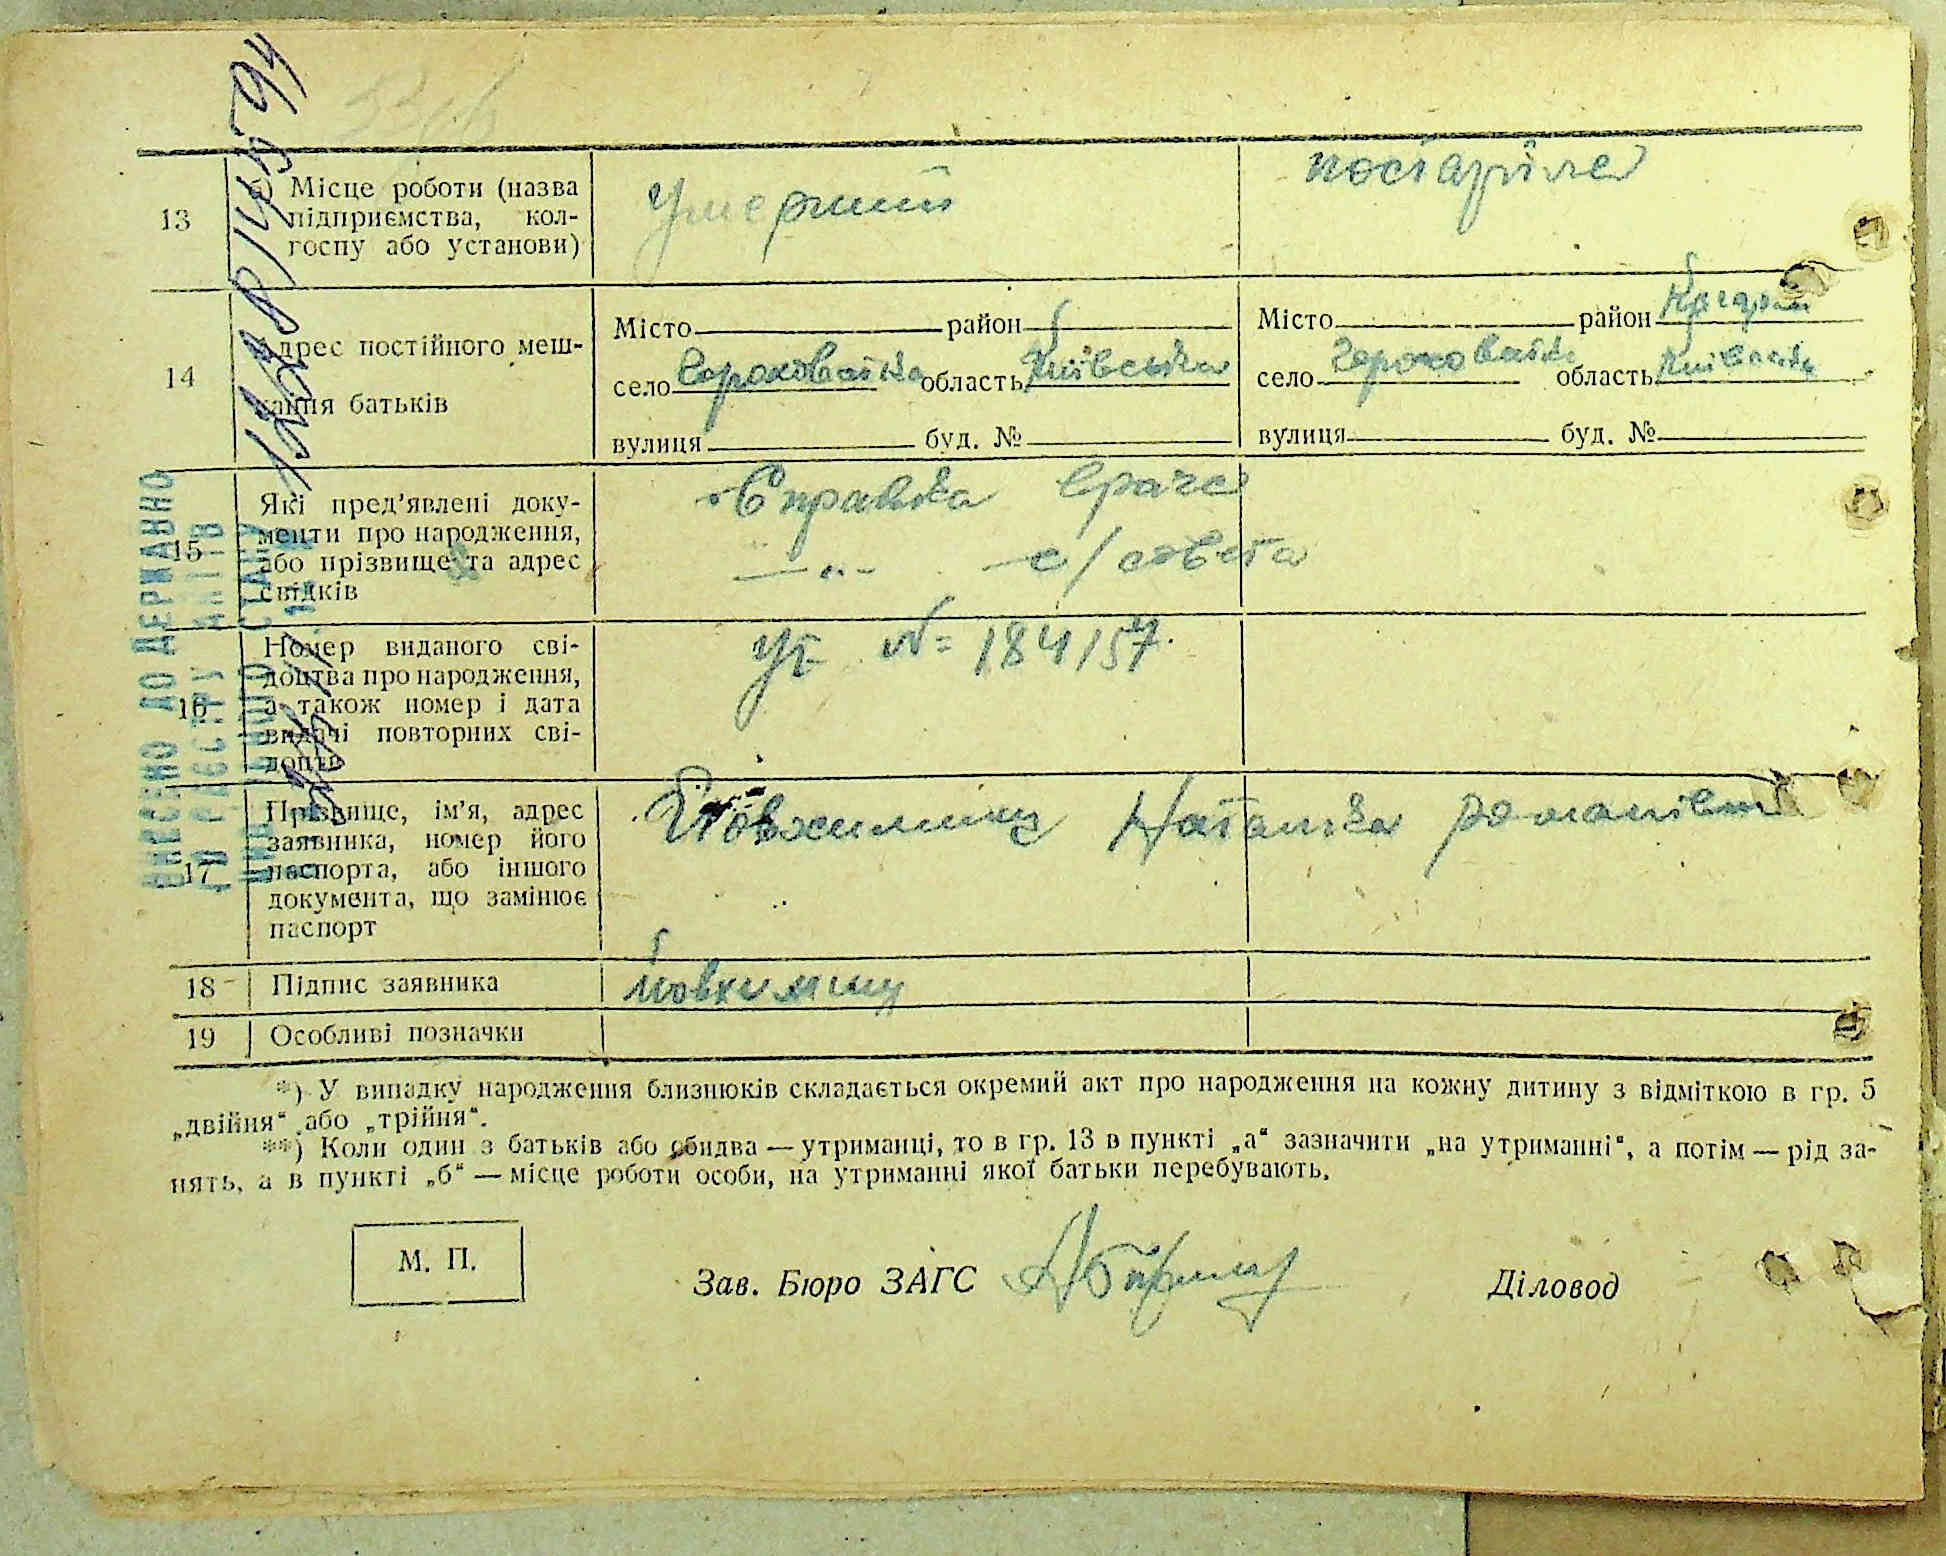 13
б) Місце роботи (назва
підприємства, кол-
госпу або установи)
умерший
постаріла
14
Адрес постійного меш-
кання батьків
Місто район
село Гороховатка область Київська
вулиця буд. №
Місто район Кагарл
село Гороховатка область Київська
вулиця буд. №
15
Які пред’явлені доку-
менти про народження,
або прізвище та адрес
свідків
Справка врача
—„— с/совета
16
Номер виданого сві-
доцтва про народження,
а також номер і дата
видачі повторних сві-
доцтв
УБ № 184157.
17
Прізвище, ім’я, адрес
заявника, номер його
паспорта, або іншого
документа, що замінює
паспорт
Наталка романівна
18 Підпис заявника
19 Особливі позначки
ВНЕСЕНО ДО ДЕРЖАВНО
РЕЄСТРУ АКТІВ
СТАНУ
*) У випадку народження близнюків складається окремий акт про народження на кожну дитину з відміткою в гр. 5
„двійня“ або „трійня“.
**) Коли один з батьків або обидва — утриманці, то в гр. 13 в пункті „а“ зазначити „на утриманні“, а потім — рід за-
нять, а в пункті „б“ — місце роботи особи, на утриманні якої батьки перебувають.
М. П.
Зав. Бюро ЗАГС
Діловод